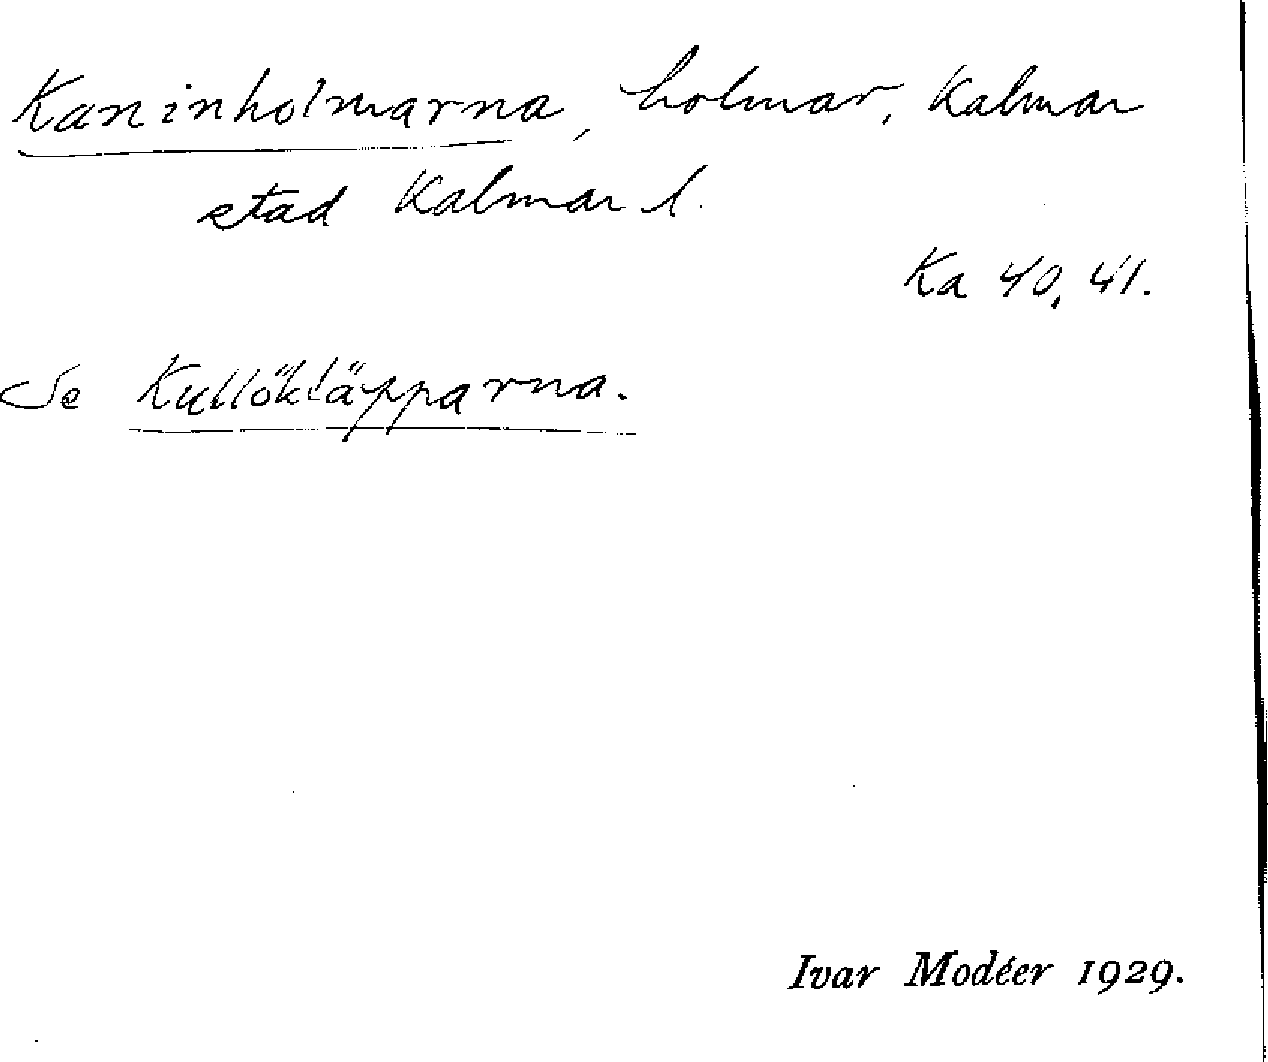 Kaninholmarna, holmar, Kalmar
stad Kalmar l.
Ka 40, 41.
Se Kullökläpparna.
Ivar Modéer 1929.